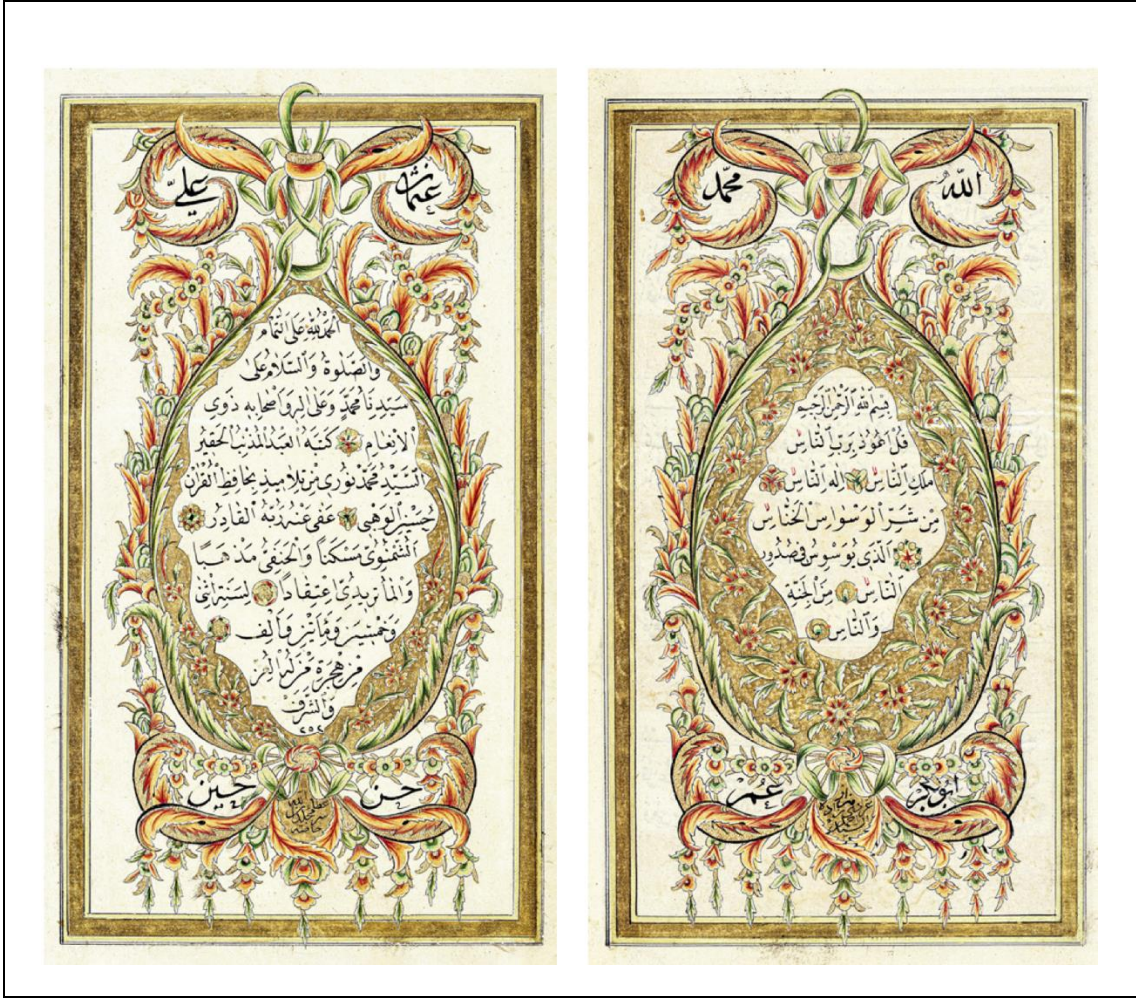 الله محمد
بسم الله الرحمن الرحيم
قل اعوذ برب الناس
ملك الناس اله الناس
من شر الوسواس الخناس
الذى يوسوس فى صدور
الناس من الجنة
والناس
ابوبكر عمر
عثمان علي
الحمد لله على التمام
والصلوة والسلام على
سيدنا محمد وعلى اله واصحابه ذوى
الانعام كتبه العبد المذنب الحقير
السيد محمد نورى من تلاميذ بحافظ القران
حسين الوهبى عفى عنه ربه القادر
الشمنوى مسكنا والحنفى مذهبا
والماتريدى اعتقادا لسنة اثنى
وخمسين ومائتين والف
من هجرة من له العز
والشرف
٢٥٢
حسن حسين